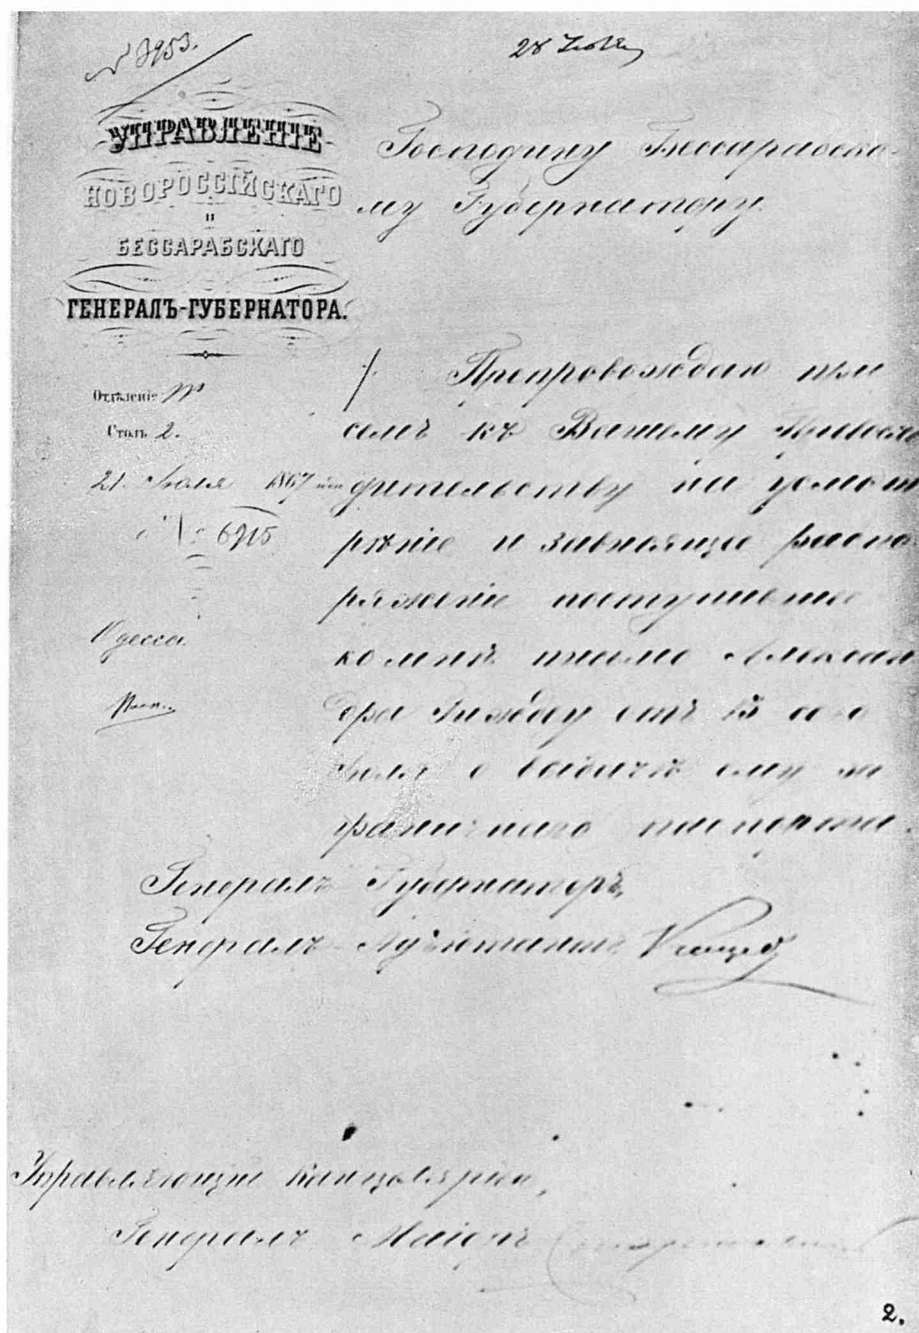 № 3953.
28 Іюля
УПРАВЛЕНІЕ
НОВОРОССІЙСКАГО
И
БЕССАРАБСКАГО
ГЕНЕРАЛЪ-ГУБЕРНАТОРА.
Отдѣленіе
Столъ 2.
21 Іюля 1867
№ 6915
Одесса.
Господину Бессарабско-
му Губернатору.
Препровождаю при
семъ къ Вашему Превосхо
дительству на усмот
рѣніе и зависящее распо
ряженіе поступившее
ко мнѣ письмо Алексан
дра Хиждеу отъ 13 сего
Іюля о выдачѣ ему за
граничнаго паспорта.
Генералъ Губернаторъ,
Генералъ-Адъютантъ Коцебу
Управляющій Канцеляріею,
Генералъ Маіоръ
2.